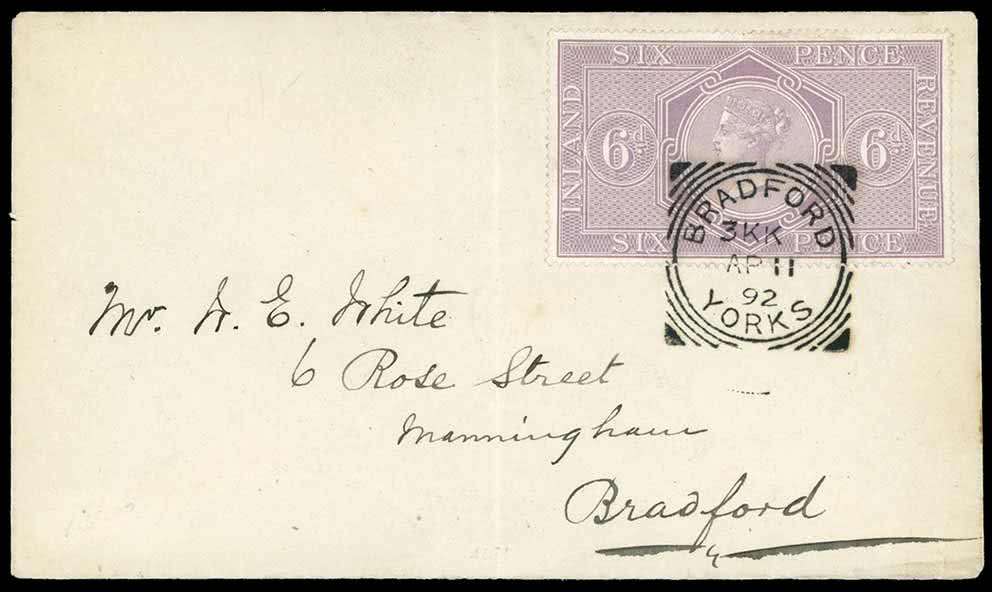 SIX PENCE
INLAND
6d
6d
REVENUE
SIX PENCE
BRADFORD
3KK
AP 11
92
YORKS
Mr. W. E. White
6 Rose Street
Manningham
Bradford